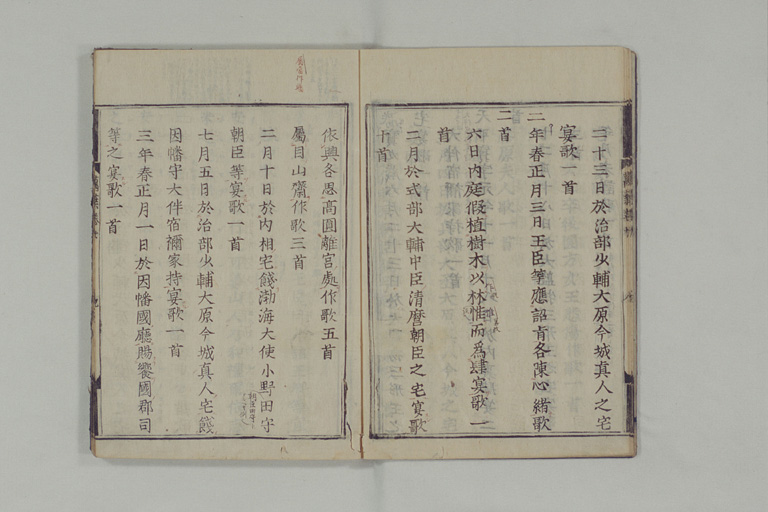 二十三日於治部少輔大原今城真人之宅
宴歌一首
二年春正月三日王臣等應詔肯各陳心緒歌
二首
六日内庭假植樹木以林惟而爲肆宴歌一
首
二月於式部大輔中臣清麿朝臣之宅宴歌
十首
依興各思高圓離宮處作歌五首
屬目山齋作歌三首
二月十日於内相宅餞渤海大使小野田守
朝臣等宴歌一首
七月五日於治部少輔大原今城真人宅餞
因幡守大伴宿禰家持宴歌一首
三年春正月一日於因幡國廳賜饗國郡司
等之宴歌一首